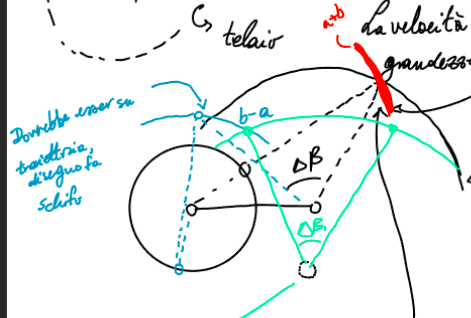 telaio
a+b
La velocità
grandezza
Dovrebbe esser su
traiettoria,
disegno fa
schifo
b-a
Δβ
Δβ₁